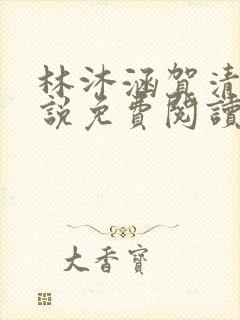 林沐涵賀清
說免費閱讀
大香寶